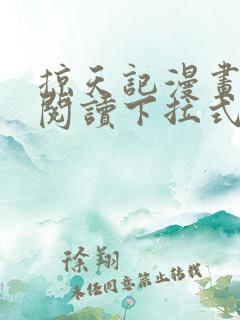 掠天記漫畫
閱讀下拉式
徐翔
未經同意禁止轉載